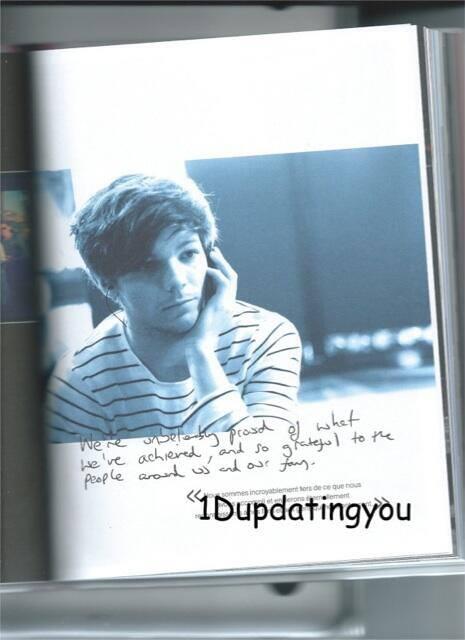 We're unbelievably proud of what
we've achieved, and so grateful to the
people around us and our fans.
« Nous sommes incroyablement fiers de ce que nous
accompli et en serons éternellement
»
1Dupdatingyou